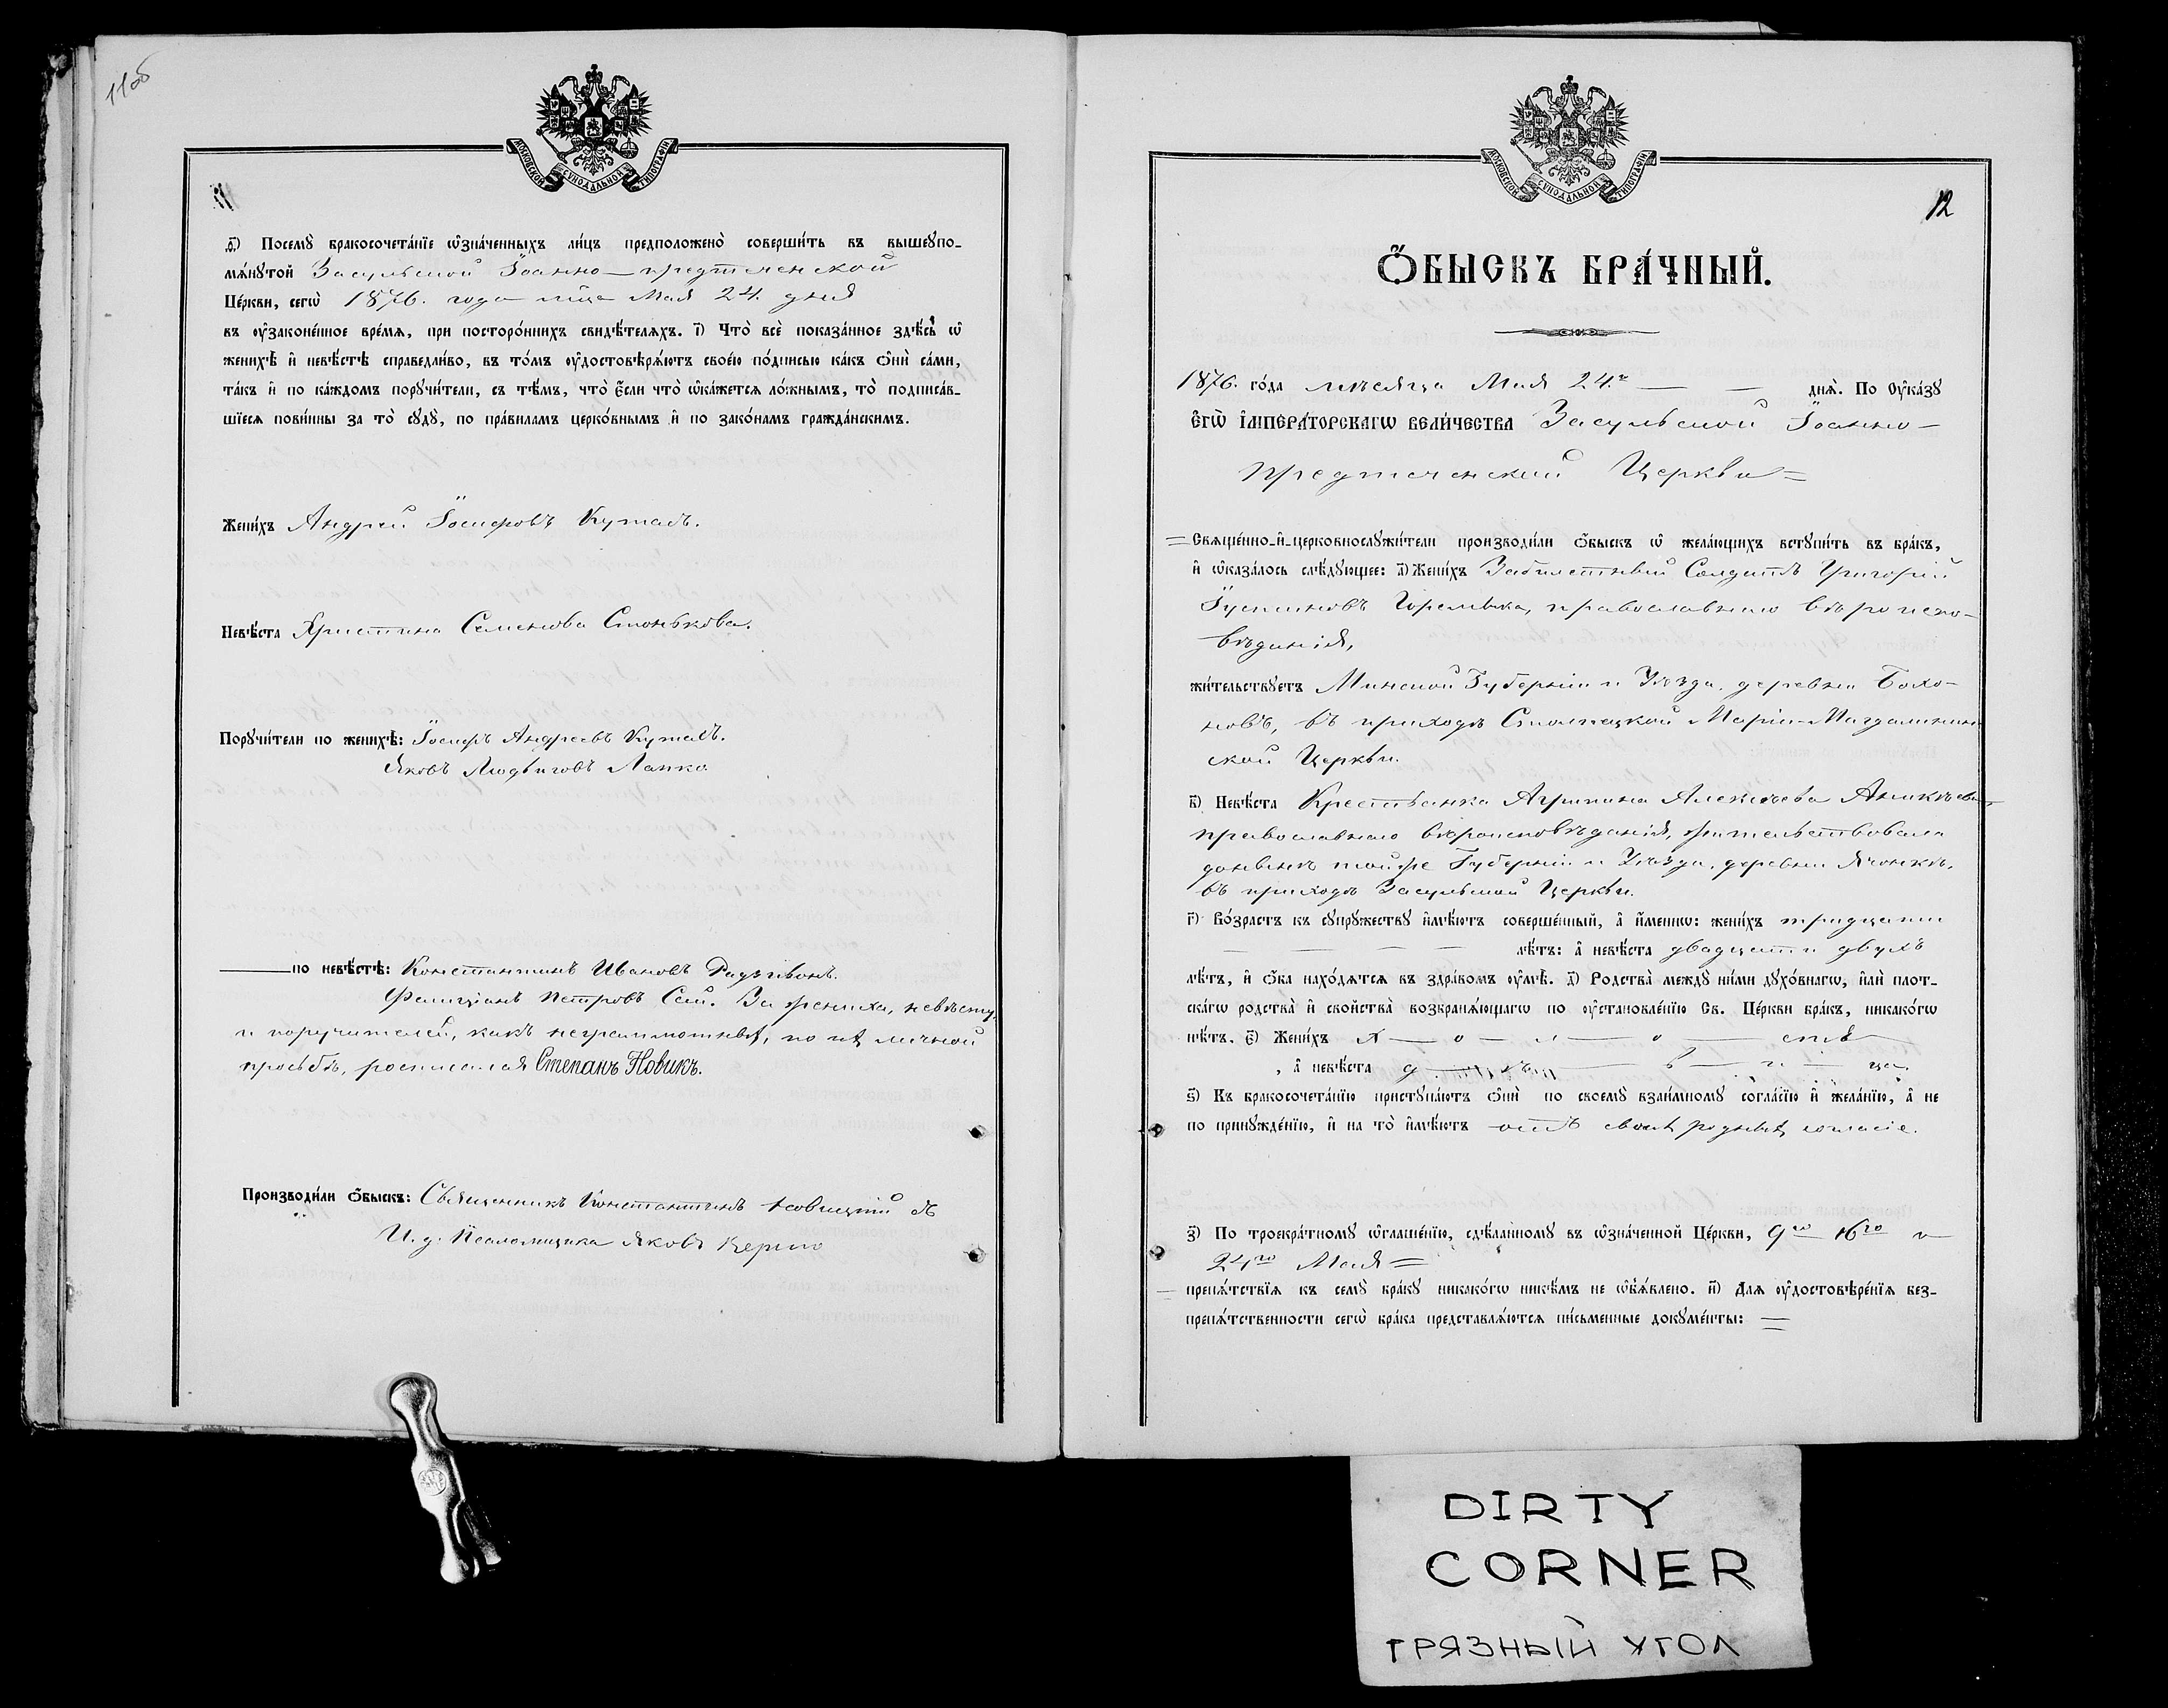 11об
МОСКОВСКОЙ СѴНОДАЛЬНОЙ ТИПОГРАФІИ
11
ѳ҃) Посемꙋ̀ бракосочета́нїе ѡ҆зна́ченныхъ ли́цъ предположено̀ соверши́ть въ вышеꙋпо-
мѧ́нꙋтой Засульской Іоанно-предтеченской
Це́ркви, сегѡ̀ 1876. года м-ца Мая 24. дня
въ ᲂу҆законе́нное вре́мѧ, при посторо́ннихъ свидѣ́телѧхъ. і҃) Что̀ всѐ показа́нное здѣ́сь ѡ҆
женихѣ̀ и҆ невѣ́стѣ справедли́во, въ то́мъ ᲂу҆достовѣрѧ́ютъ свое́ю по́дписью ка́къ ѻ҆нѝ са́ми,
та́къ и҆ по ка́ждомъ порꙋчи́тели, съ тѣ́мъ, что̀ є҆́сли что̀ ѡ҆ка́жетсѧ ло́жнымъ, то̀ подписа́в-
шїесѧ пови́нны за то̀ сꙋдꙋ̀, по пра́виламъ церко́внымъ и҆ по зако́намъ гражда́нскимъ.
Жени́хъ Андрей Іосифовъ Куташъ.
Невѣ́ста Христина Семенова Стонькова.
Порꙋчи́тели по женихѣ̀: Іосифъ Андреевъ Куташъ.
Яковъ Людвиговъ Лапко
по невѣ́стѣ: Константинъ Ивановъ Радзивонъ.
Фелиціанъ Петровъ Сай. За жениха, невѣсту
и поручителей, какъ неграмотныхъ, по ихъ личной
просьбѣ, росписался Степанъ Новикъ.
Производи́ли ѻ҆́быскъ: Священникъ Константинъ
И. д. Псаломщика Яковъ
МОСКОВСКОЙ СѴНОДАЛЬНОЙ ТИПОГРАФІИ
12
Ѻ҆́БЫСКЪ БРА́ЧНЫЙ.
1876. го́да мѣсяца Мая 24.го — — днѧ̀. По Оу҆ка́зꙋ
Є҆ГѠ̀ И҆МПЕРА́ТОРСКАГѠ ВЕЛИ́ЧЕСТВА Засульской Іоанно-
предтеченской Церкви =
= Свѧще́нно-и҆-церковнослꙋжи́тели производи́ли ѻ҆́быскъ ѡ҆ жела́ющихъ встꙋпи́ть въ бра́къ,
и҆ ѡ҆каза́лось слѣ́дꙋющее: а҃) Жени́хъ Забилетный Солдатъ Григорій
Іустиновъ Горемыка, православнаго вѣроиспо-
вѣданія,
жи́тельствꙋетъ Минской Губерніи и Уѣзда, деревни
въ приходѣ Столпецкой Маріи-Магдалинин
ской Церкви.
в҃) Невѣ́ста Крестьянка Агрипина Алексѣева
православнаго вѣроисповѣданія, жительствовала
донынѣ той же Губерніи и Уѣзда, деревни Ячонкѣ,
въ приходѣ Засульской Церкви.
г҃) Во́зрастъ къ сꙋпрꙋжествꙋ и҆мѣ́ютъ соверше́нный, а҆ и҆́меннѡ: жени́хъ тридцати
— — — — лѣ́тъ: а҆ невѣ́ста двадцати двухъ
лѣ́тъ, и҆ ѻ҆́ба нахо́дѧтсѧ въ здра́вомъ ᲂу҆мѣ̀. д҃) Родства̀ междꙋ̀ ни́ми дꙋхо́внагѡ, и҆лѝ плот-
ска́гѡ родства̀ и҆ сво́йства̀ возбранѧ́ющагѡ по ᲂу҆становле́нїю Св. Це́ркви бра́къ, никако́гѡ
нѣ́тъ. є҃) Жени́хъ х — о — л — о — стъ
, а҆ невѣ́ста д — ѣ — в — и — ца
ѕ҃) Къ бракосочета́нїю пристꙋпа́ютъ ѻ҆нѝ по своемꙋ̀ взаи́мномꙋ согла́сїю и҆ жела́нїю, а҆ не
по принꙋжде́нїю, и҆ на то̀ и҆мѣ́ютъ отъ своихъ родныхъ согласіе.
з҃) По троекра́тномꙋ ѡ҆глаше́нїю, сдѣ́ланномꙋ въ ѡ҆зна́ченной Це́ркви, 9го 16го и
24го Мая =
препѧ́тствїѧ къ семꙋ̀ бра́кꙋ никако́гѡ никѣ́мъ не ѡ҆б̾ѧ́влено. и҃) Длѧ ᲂу҆достовѣре́нїѧ без-
препѧ́тственности сегѡ̀ бра́ка представлѧ́ютсѧ пи́сьменные докꙋме́нты: =
DIRTY
CORNER
ГРЯЗНЫЙ УГОЛ